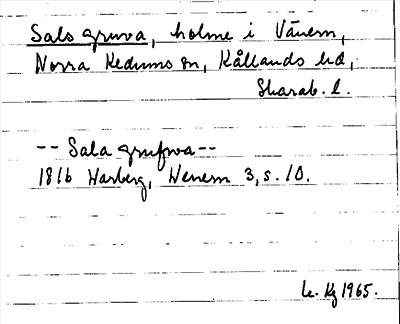 Sals gruva, holme i Vänern,
Norra Kedums sn, Kållands hd,
Skarab. l.
-- Sala grufwa --
1816 Warberg, Wenern 3, s. 10.
Le. Kg 1965.